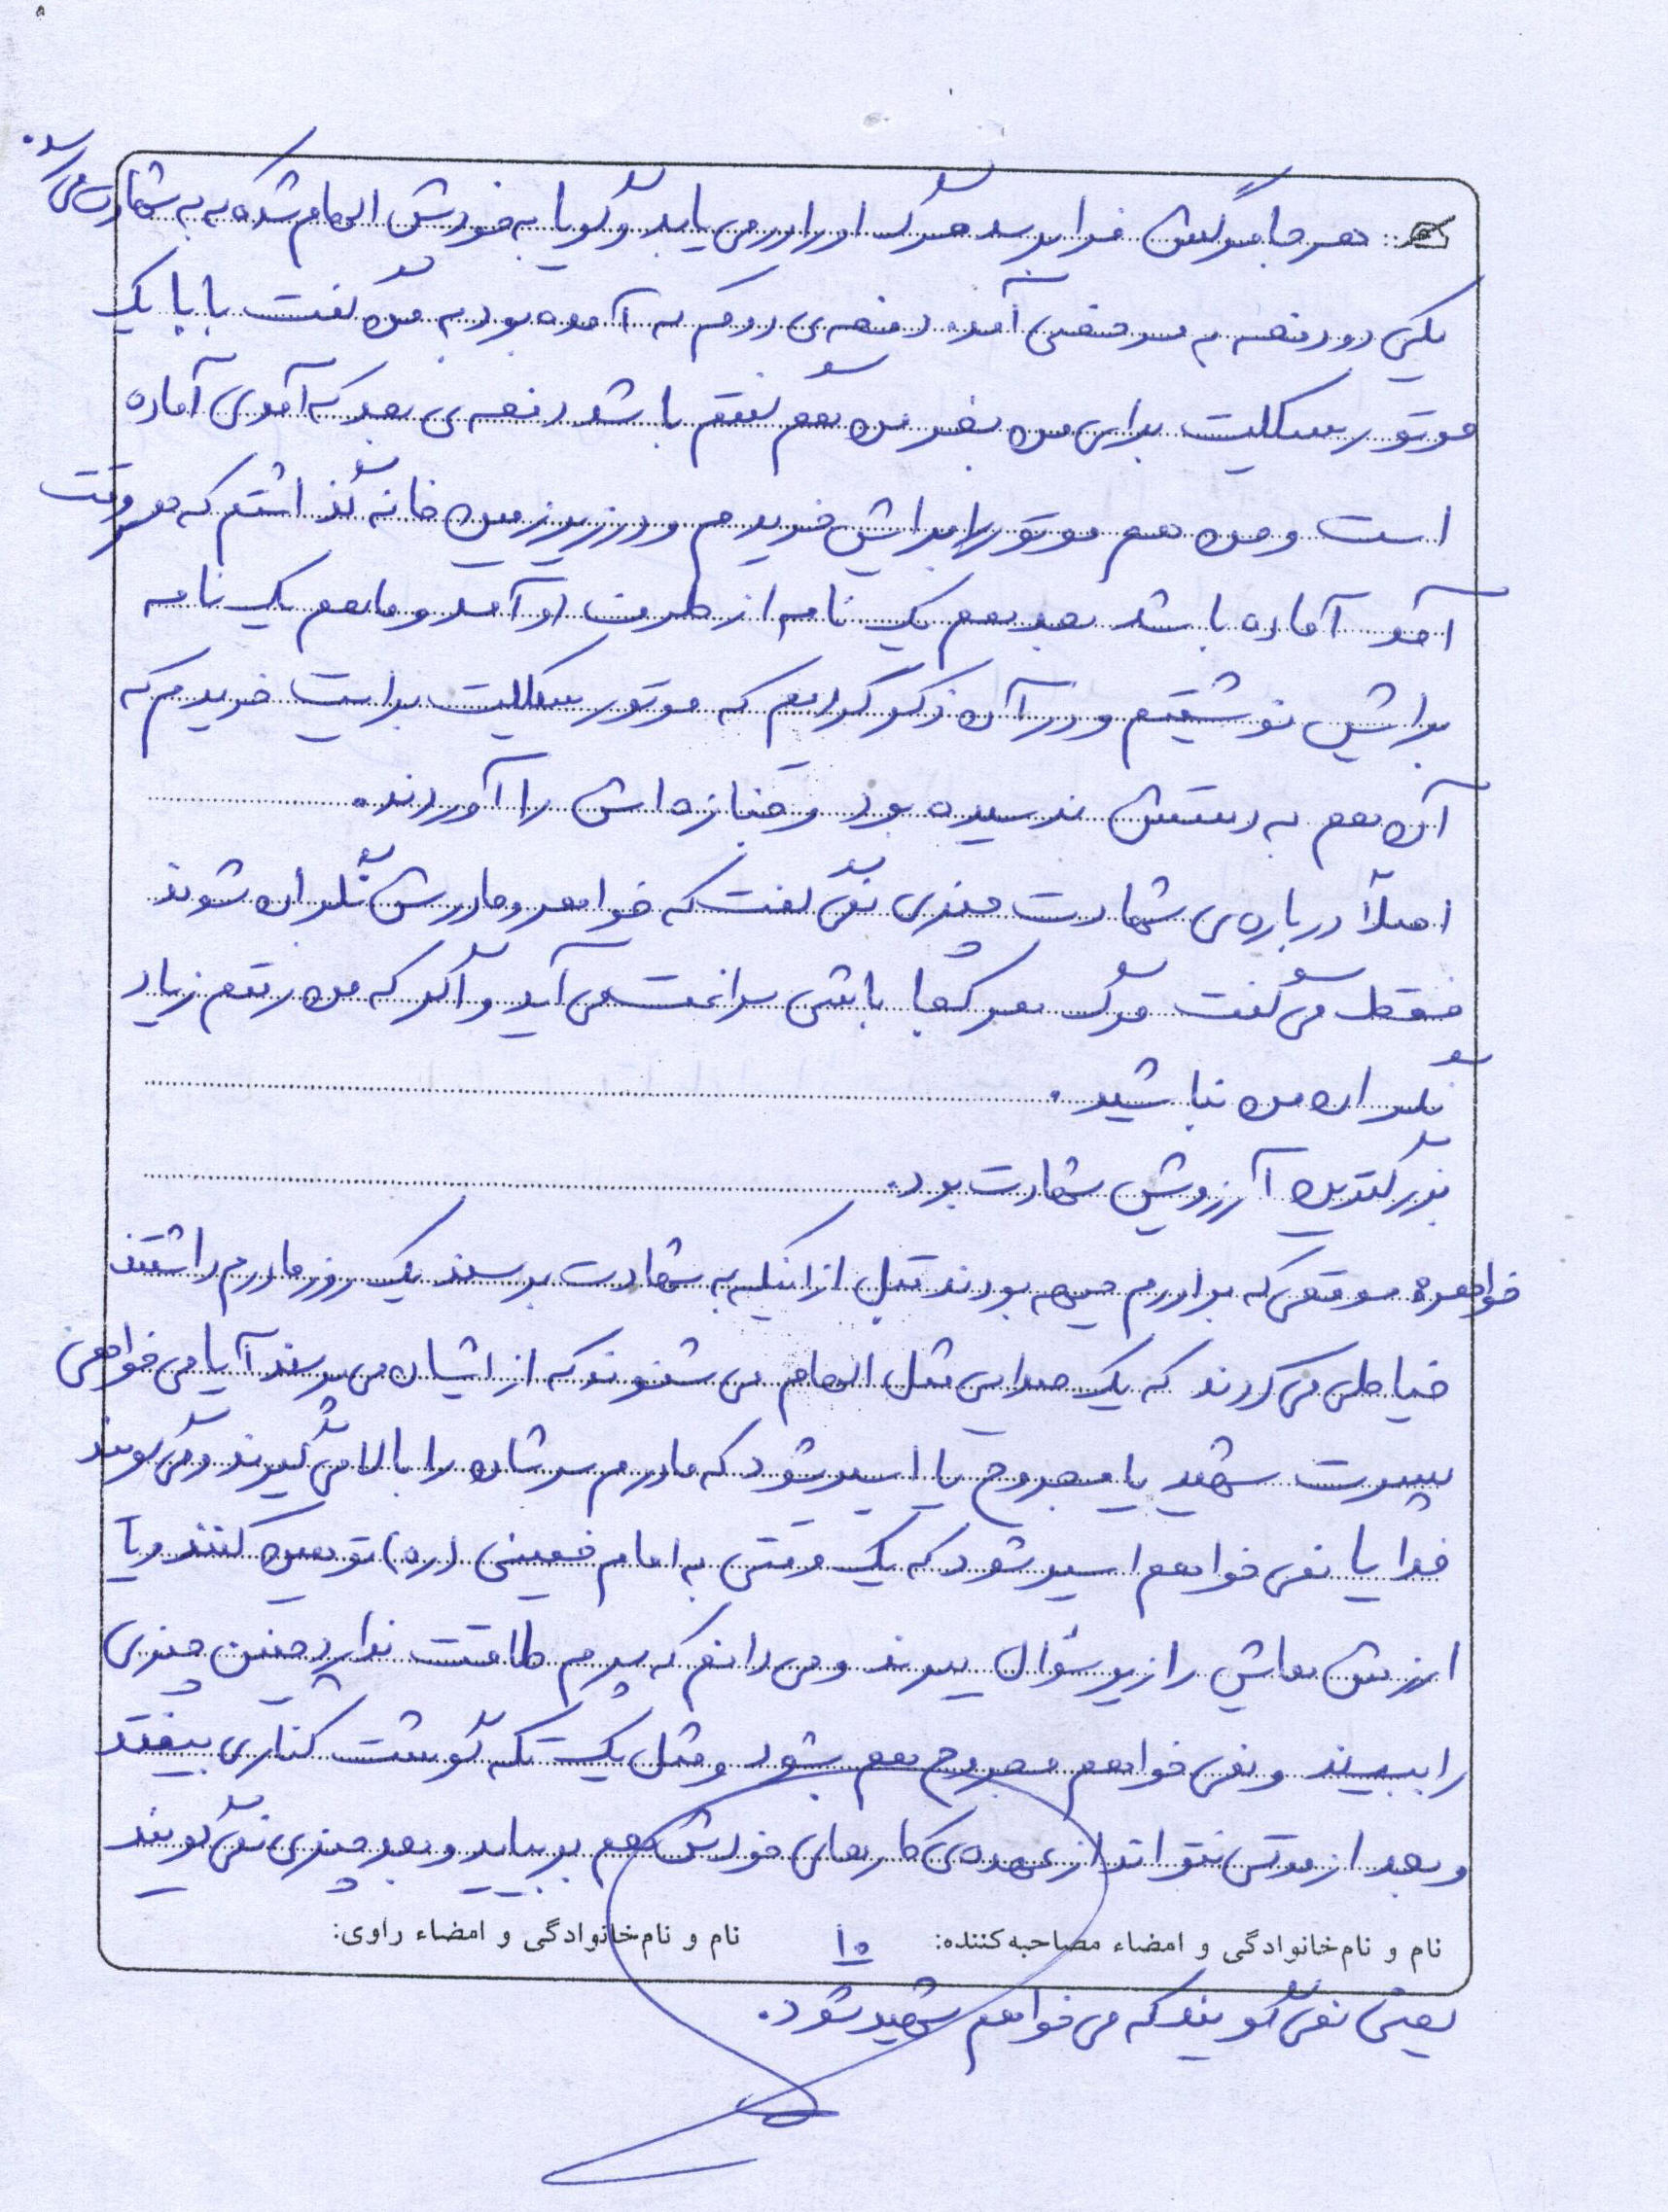 هر جا مرگش فرا برسد مرگ او را در می یابد و گویا به خودش الهام شده که به شهادت می رسد.
یکی دو دفعه به مرخصی آمد. دفعه ی دوم که آمده بود به من گفت بابا یک
موتور سیکلیت برای من بخر من هم گفتم باشد دفعه ی بعد که آمدی آماده
است و من هم موتور را برایش خریدم و در زیرزمین خانه گذاشتم که هر وقت
آمد آماده باشد بعد هم یک نامه از طرف او آمد و ما هم یک نامه
برایش نوشتیم و در آن ذکر کردیم که موتور سیکلیت برایت خریدم که
آن هم به دستش نرسیده بود و جنازه اش را آوردند.
اصلاً درباره ی شهادت چیزی نمی گفت که خواهر و مادرش نگران شوند
فقط می گفت مرگ هر کجا باشی سراغت می آید و اگر که من رفتم زیاد
نگران من نباشید.
بزرگترین آرزویش شهادت بود.
خواهر: موقعی که برادرم جبهه بودند قبل از اینکه به شهادت برسند یک روز مادرم داشتند
خیاطی می کردند که یک صدایی مثل الهام می شنوند که از ایشان می پرسند آیا می خواهی
پسرت شهید یا مجروح یا اسیر شود که مادرم سرشان را بالا می گیرند و می گویند
خدایا نمی خواهم اسیر شود که یک وقتی به امام خمینی (ره) توهین کنند و یا
ارزش هایش را زیر سئوال ببرند و می دانم که پسرم طاقت ندارد چنین چیزی
را ببیند و نمی خواهم مجروح هم بشود و مثل یک تکه گوشت کناری بیفتد
و بعد از مدتی نتواند از عهده ی کارهای خودش هم بر بیاید و بعد چیزی نمی گویند
نام و نام‌خانوادگی و امضاء مصاحبه‌کننده: ۱۰ نام و نام‌خانوادگی و امضاء راوی:
یعنی نمی گویند که می خواهم شهید شود.